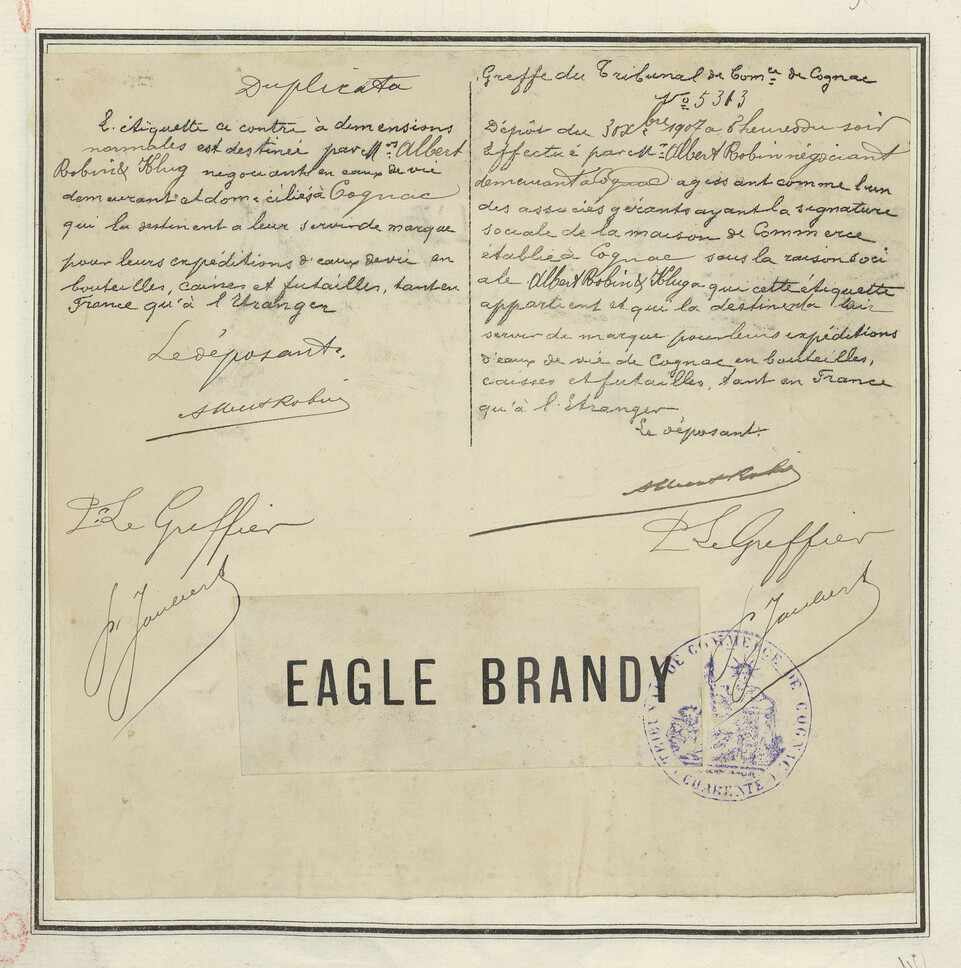 Duplicata
L'étiquette ci contre à dimensions
normales est destinée par Mrs Albert
Robin & Klug négociants en eaux de vie
demeurant et domiciliés à Cognac
qui la destinent a leur servir de marque
pour leurs expéditions d'eaux de vie en
bouteilles, caisses et futailles, tant en
France qu'à l'Etranger
Le déposant.
Albert Robin
Pr Le Greffier
P. Joubert
Greffe du Tribunal de Comce de Cognac
No 5313
Dépôt du 30 Xbre 1907 a 5 heures du soir
Effectué par Mr. Albert Robin négociant
demeurant à Cognac agissant comme l'un
des associés gérants ayant la signature
sociale de la maison de Commerce
établie à Cognac sous la raison soci
ale Albert Robin & Klug a qui cette étiquette
appartient et qui la destine à leur
servir de marque pour leurs expéditions
d'eaux de vie de Cognac en bouteilles,
caisses et futailles, tant en France
qu'à l'Etranger
Le déposant.
Albert Robin
P Le Greffier
P. Joubert
EAGLE BRANDY
TRIBUNAL DE COMMERCE DE COGNAC
CHARENTE